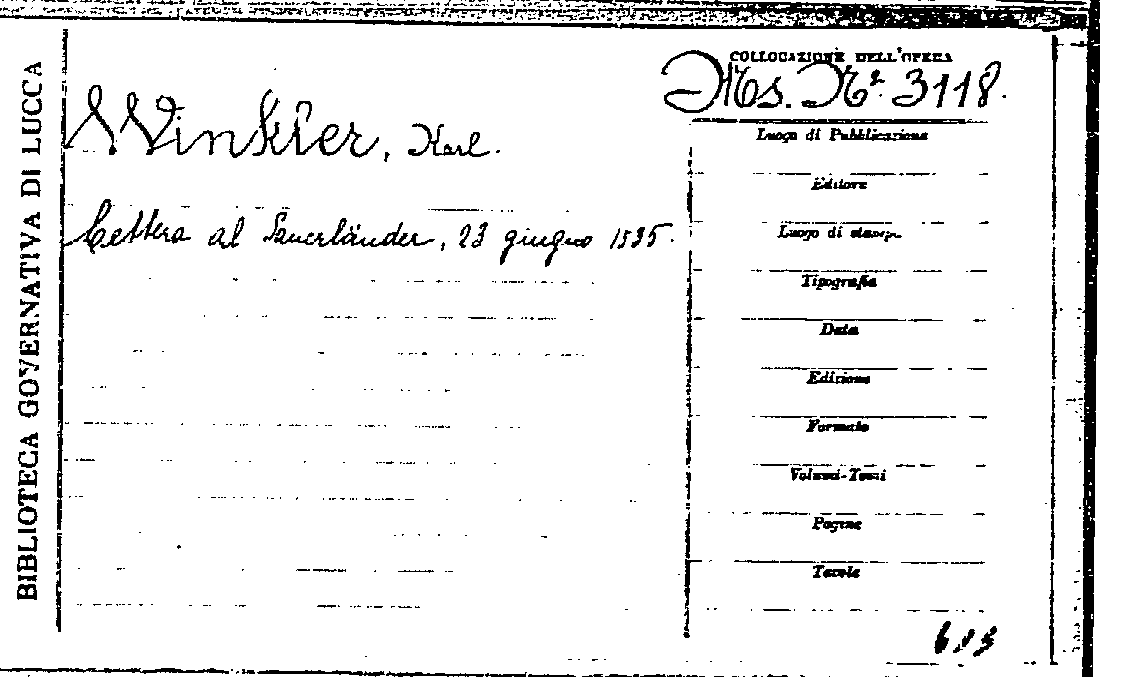 BIBLIOTECA GOVERNATIVA DI LUCCA
Winkler, Karl.
Lettera al Sauerländer, 23 giugno 1835.
COLLOCAZIONE DELL'OPERA
Ms. Nº 3118.
Luogo di Pubblicazione
Editore
Luogo di stampa
Tipografia
Data
Edizione
Formato
Volumi-Tomi
Pagine
Tavole